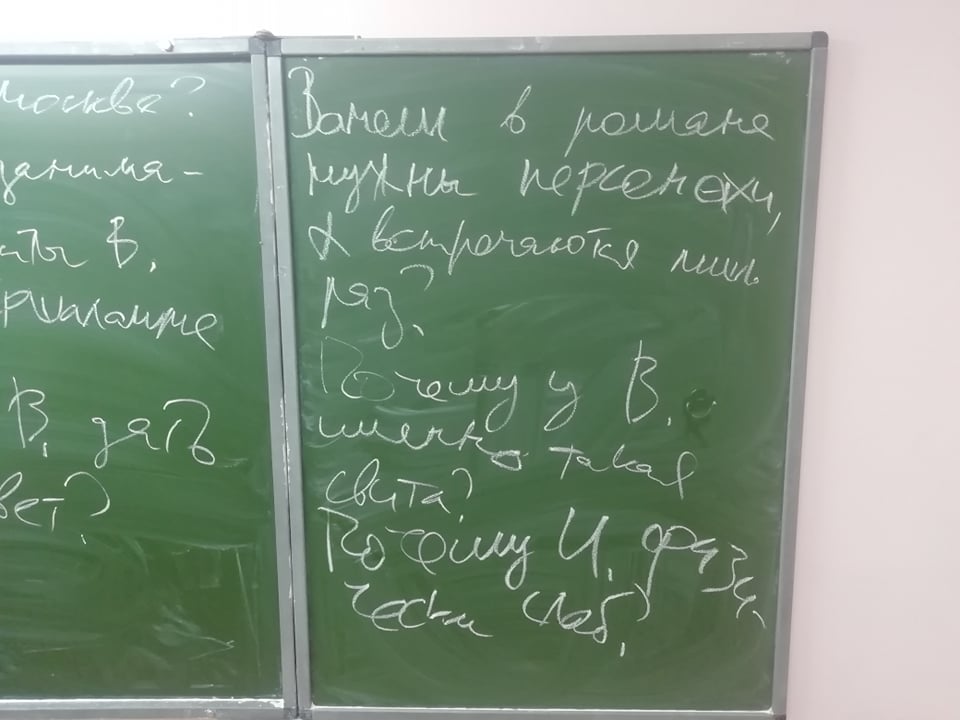 Москва?
занима-
В.
ершалаиме
В. дать
вет?
Зачем в романе
нужны персонажи,
встречаются лишь
раз?
Почему у В.
именно такая
свита?
Почему И. физи-
чески слаб?